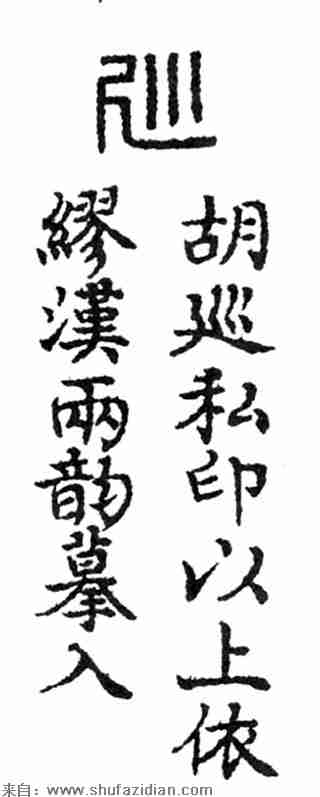 巡
胡巡私印以上依
繆漢兩韵摹入
来自：www.shufazidian.com